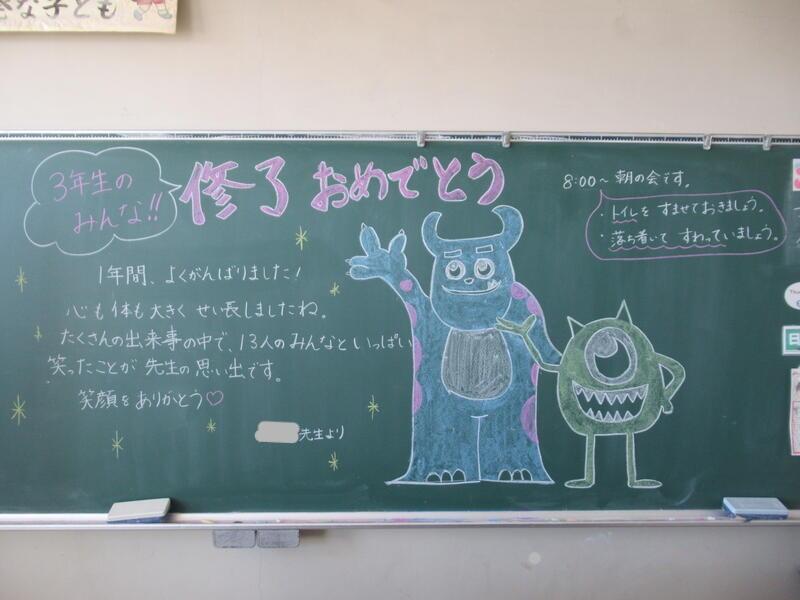 きな子ども
3年生の
みんな!!
修了おめでとう
1年間、よくがんばりました!
心も体も大きく せい長しましたね。
たくさんの出来事の中で、13人のみんなといっぱい
笑ったことが 先生の思い出です。
笑顔をありがとう♡
先生より
8:00~ 朝の会です。
・トイレを すませておきましょう。
・落ち着いて すわっていましょう。
日